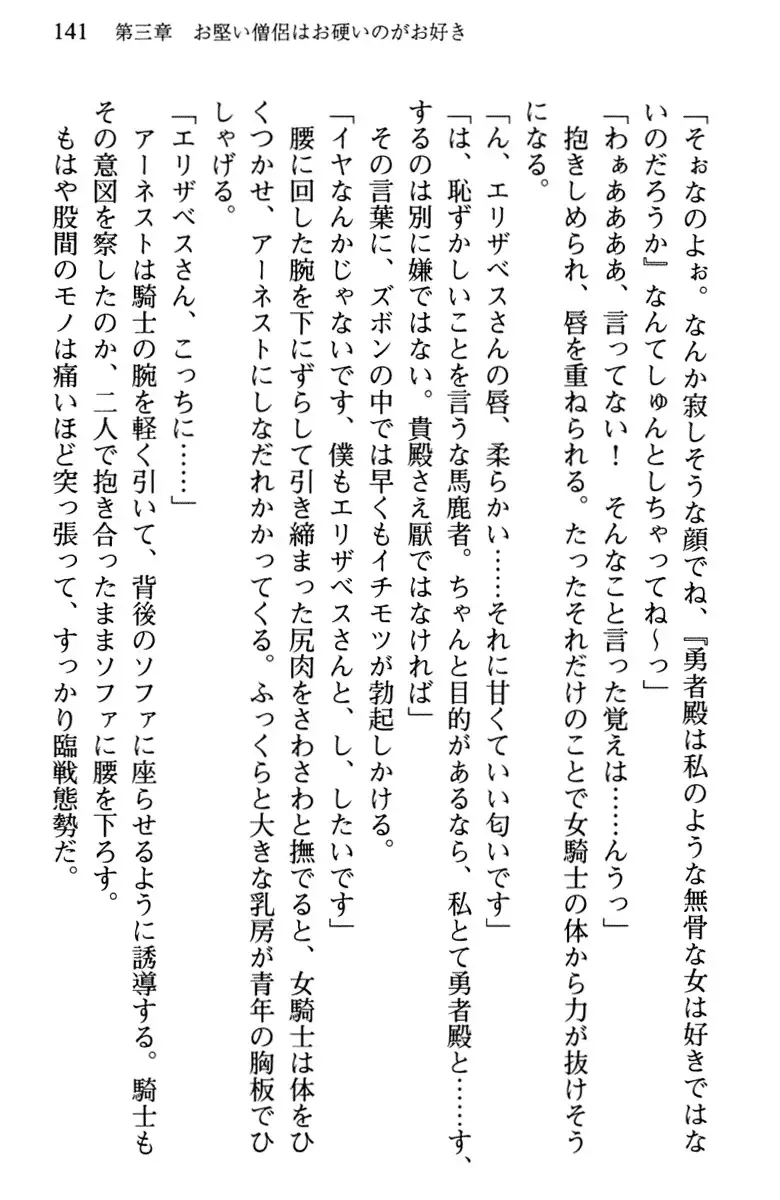 141　第三章　お堅い僧侶はお硬いのがお好き
「そぉなのよぉ。なんか寂しそうな顔でね、『勇者殿は私のような無骨な女は好きではな
いのだろうか』なんてしゅんとしちゃってね～っ」
「わぁああああ、言ってない！　そんなこと言った覚えは……んうっ」
　抱きしめられ、唇を重ねられる。たったそれだけのことで女騎士の体から力が抜けそう
になる。
「ん、エリザベスさんの唇、柔らかい……それに甘くていい匂いです」
「は、恥ずかしいことを言うな馬鹿者。ちゃんと目的があるなら、私とて勇者殿と……す、
するのは別に嫌ではない。貴殿さえ厭ではなければ」
　その言葉に、ズボンの中では早くもイチモツが勃起しかける。
「イヤなんかじゃないです、僕もエリザベスさんと、し、したいです」
　腰に回した腕を下にずらして引き締まった尻肉をさわさわと撫でると、女騎士は体をひ
くつかせ、アーネストにしなだれかかってくる。ふっくらと大きな乳房が青年の胸板でひ
しゃげる。
「エリザベスさん、こっちに……」
　アーネストは騎士の腕を軽く引いて、背後のソファに座らせるように誘導する。騎士も
その意図を察したのか、二人で抱き合ったままソファに腰を下ろす。
　もはや股間のモノは痛いほど突っ張って、すっかり臨戦態勢だ。